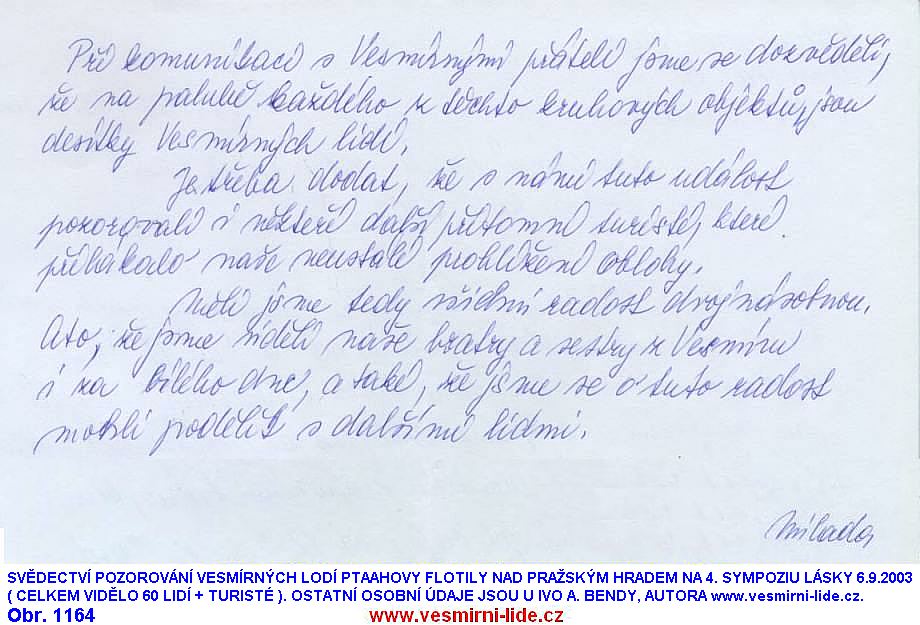 Při komunikaci s Vesmírnými přáteli jsme se dozvěděli,
že na palubě každého z těchto kruhových objektů, jsou
desítky Vesmírných lidí.
Je třeba dodat, že s námi tuto událost
pozorovali i někteří další přítomní turisté, které
přilákalo naše neustálé prohlížení oblohy.
Měli jsme tedy všichni radost dvojnásobnou.
A to, že jsme viděli naše bratry a sestry z Vesmíru
i za bílého dne, a také, že jsme se o tuto radost
mohli podělit s dalšími lidmi.
Milada
SVĚDECTVÍ POZOROVÁNÍ VESMÍRNÝCH LODÍ PTAAHOVY FLOTILY NAD PRAŽSKÝM HRADEM NA 4. SYMPOZIU LÁSKY 6.9.2003
( CELKEM VIDĚLO 60 LIDÍ + TURISTÉ ). OSTATNÍ OSOBNÍ ÚDAJE JSOU U IVO A. BENDY, AUTORA www.vesmirni-lide.cz.
Obr. 1164 www.vesmirni-lide.cz